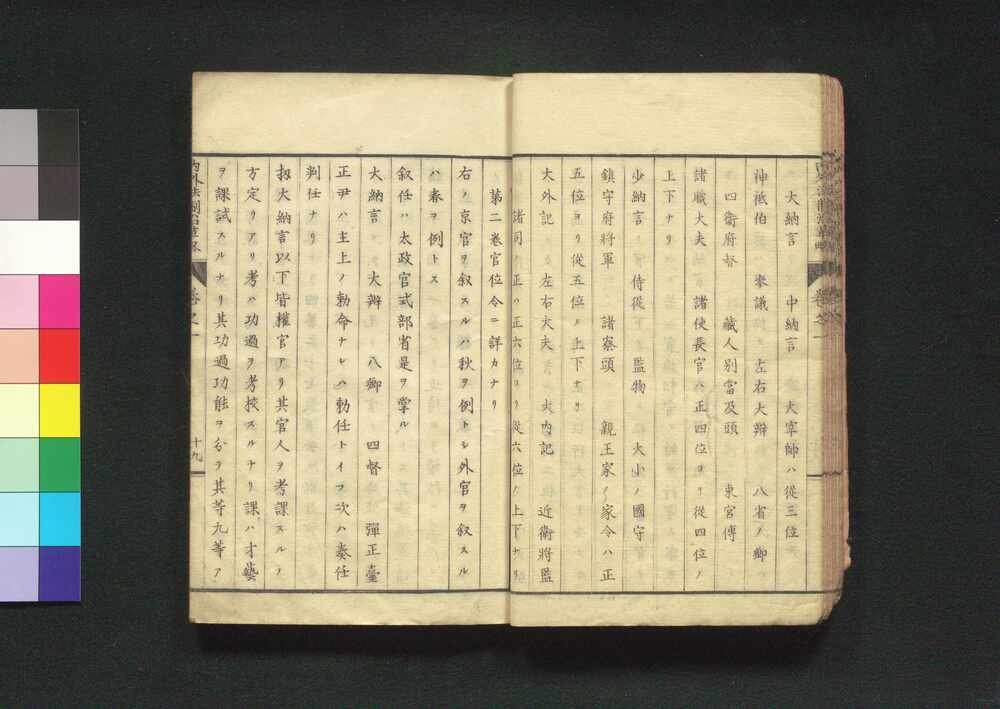 大納言　中納言　大宰帥ハ從三位
神祇伯　參議　左右大辨　八省ノ卿
四衞府督　藏人別當及頭　東宮傅
諸職大夫　諸使長官ハ正四位ヨリ從四位ノ
上下ナリ
少納言　侍從　監物　大小ノ國守
鎮守府將軍　諸寮頭　親王家ノ家令ハ正
五位ヨリ從五位ノ上下ナリ
大外記　左右大夫　大内記　近衞將監
諸司ノ正ハ正六位ヨリ從六位ノ上下ナリ
第二巻官位令ニ詳カナリ
右ノ京官ヲ叙スルハ秋ヲ例トシ外官ヲ叙スル
ハ春ヲ例トス
叙任ハ太政官式部省是ヲ掌ル
大納言　大辨　八卿　四督　彈正臺
正尹ハ主上ノ勅命ナレハ勅任トイフ次ハ奏任
判任ナリ
扨大納言以下皆權官アリ其官人ヲ考課スルノ
方定リアリ考ハ功過ヲ考校スルナリ課ハ才藝
ヲ課試スルナリ其功過功能ヲ分ヲ其等九等ア
巻之一
十九